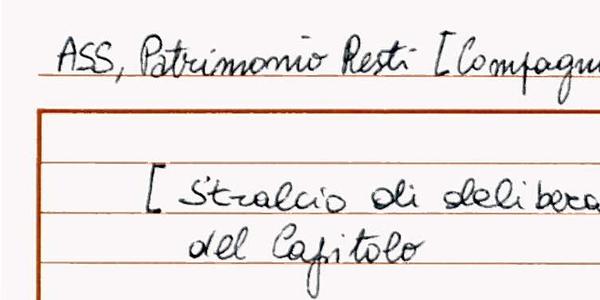 ASS, Patrimonio Resti [Compagni
[ Stralcio di delibera
del Capitolo